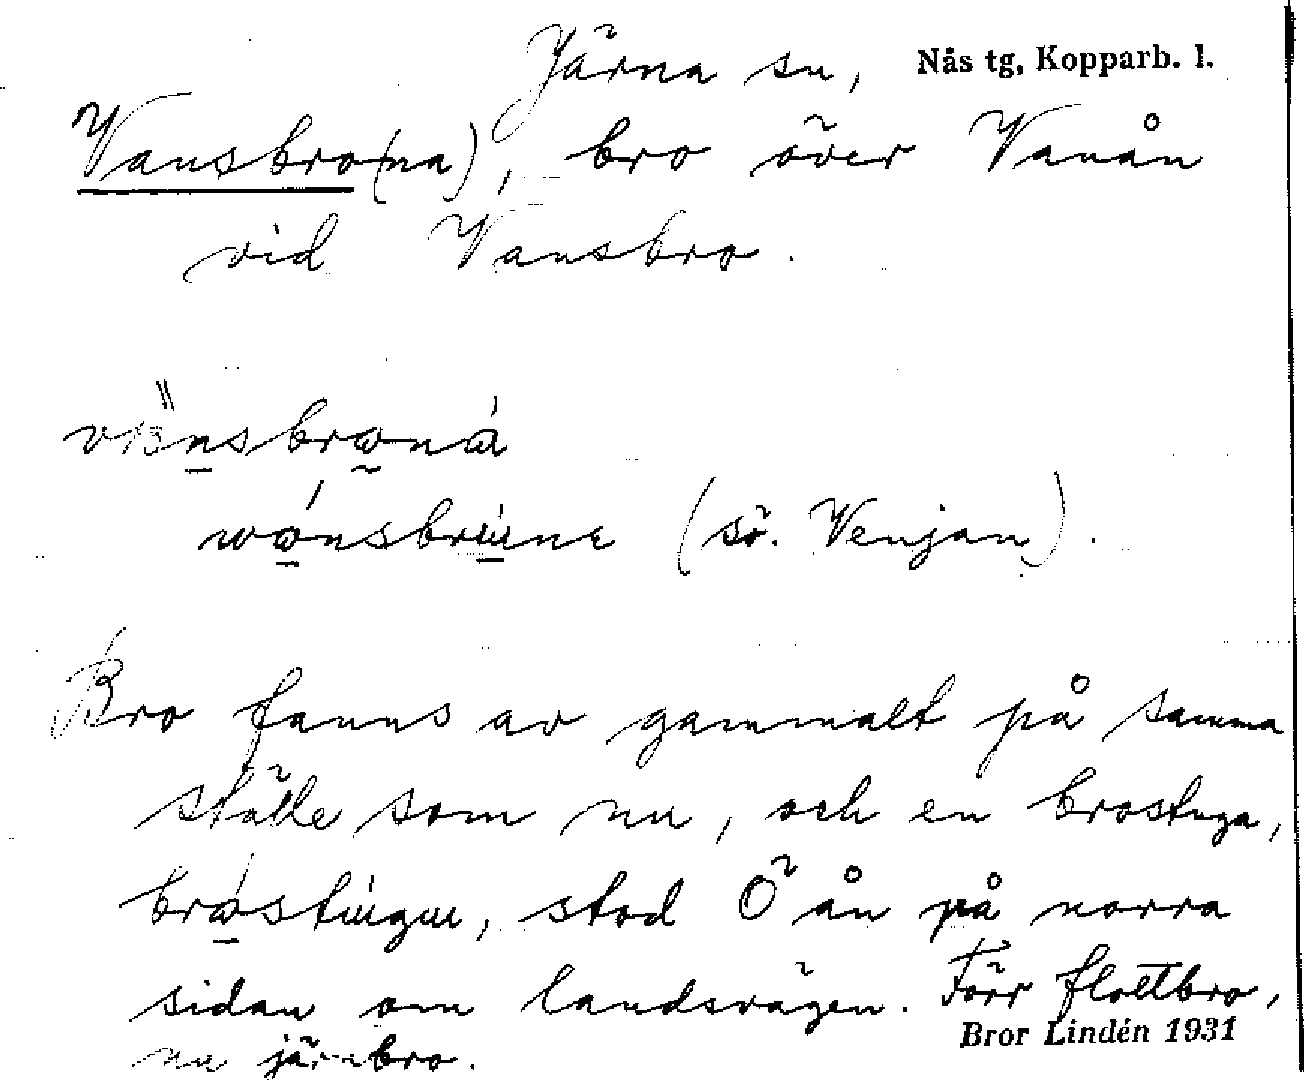 Järna sn, Nås tg, Kopparb. l.
Vansbro(na), bro över Vanån
vid Vansbro.
(sö. Venjan).
Bro fanns av gammalt på samma
ställe som nu, och en brostuga,
stod Ö ån på norra
sidan om landsvägen. Förr flottbro,
Bror Lindén 1931
nu järnbro.